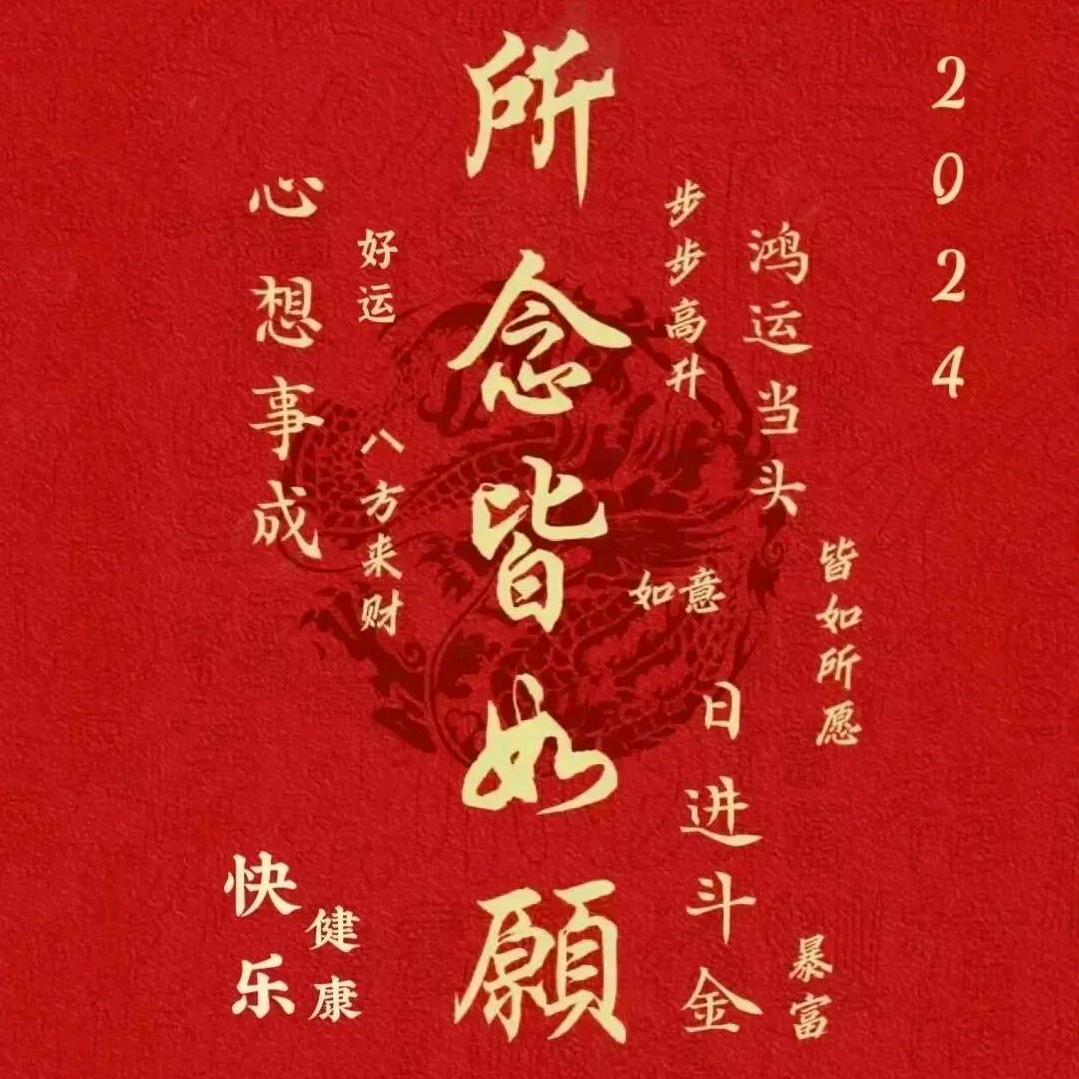 2024
鸿运当头
步步高升
皆如所愿
如意
日进斗金
暴富
所念皆如願
好运
八方来财
心想事成
健康
快乐